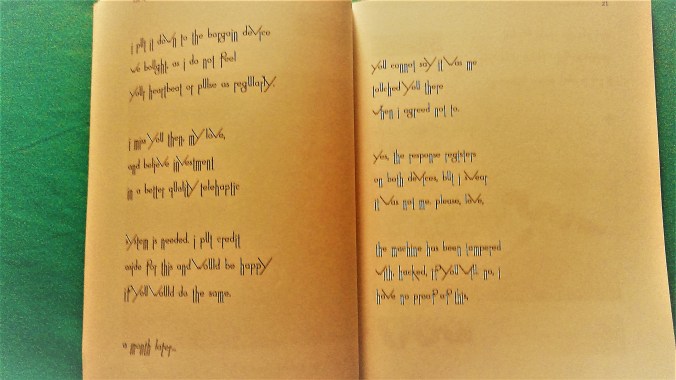 i put it down to the bargain device
we bought, as i do not feel
your heartbeat or pulse as regularly.
i miss you then, my love,
and believe investment
in a better quality telehaptic
system is needed. i put credit
aside for this and would be happy
if you would do the same.
a month later...
21
you cannot say it was me
touched you there
when i agreed not to.
yes, the response registers
on both devices, but i swear
it was not me. please, love,
the machine has been tampered
with, hacked, if you will. no, i
have no proof of this,